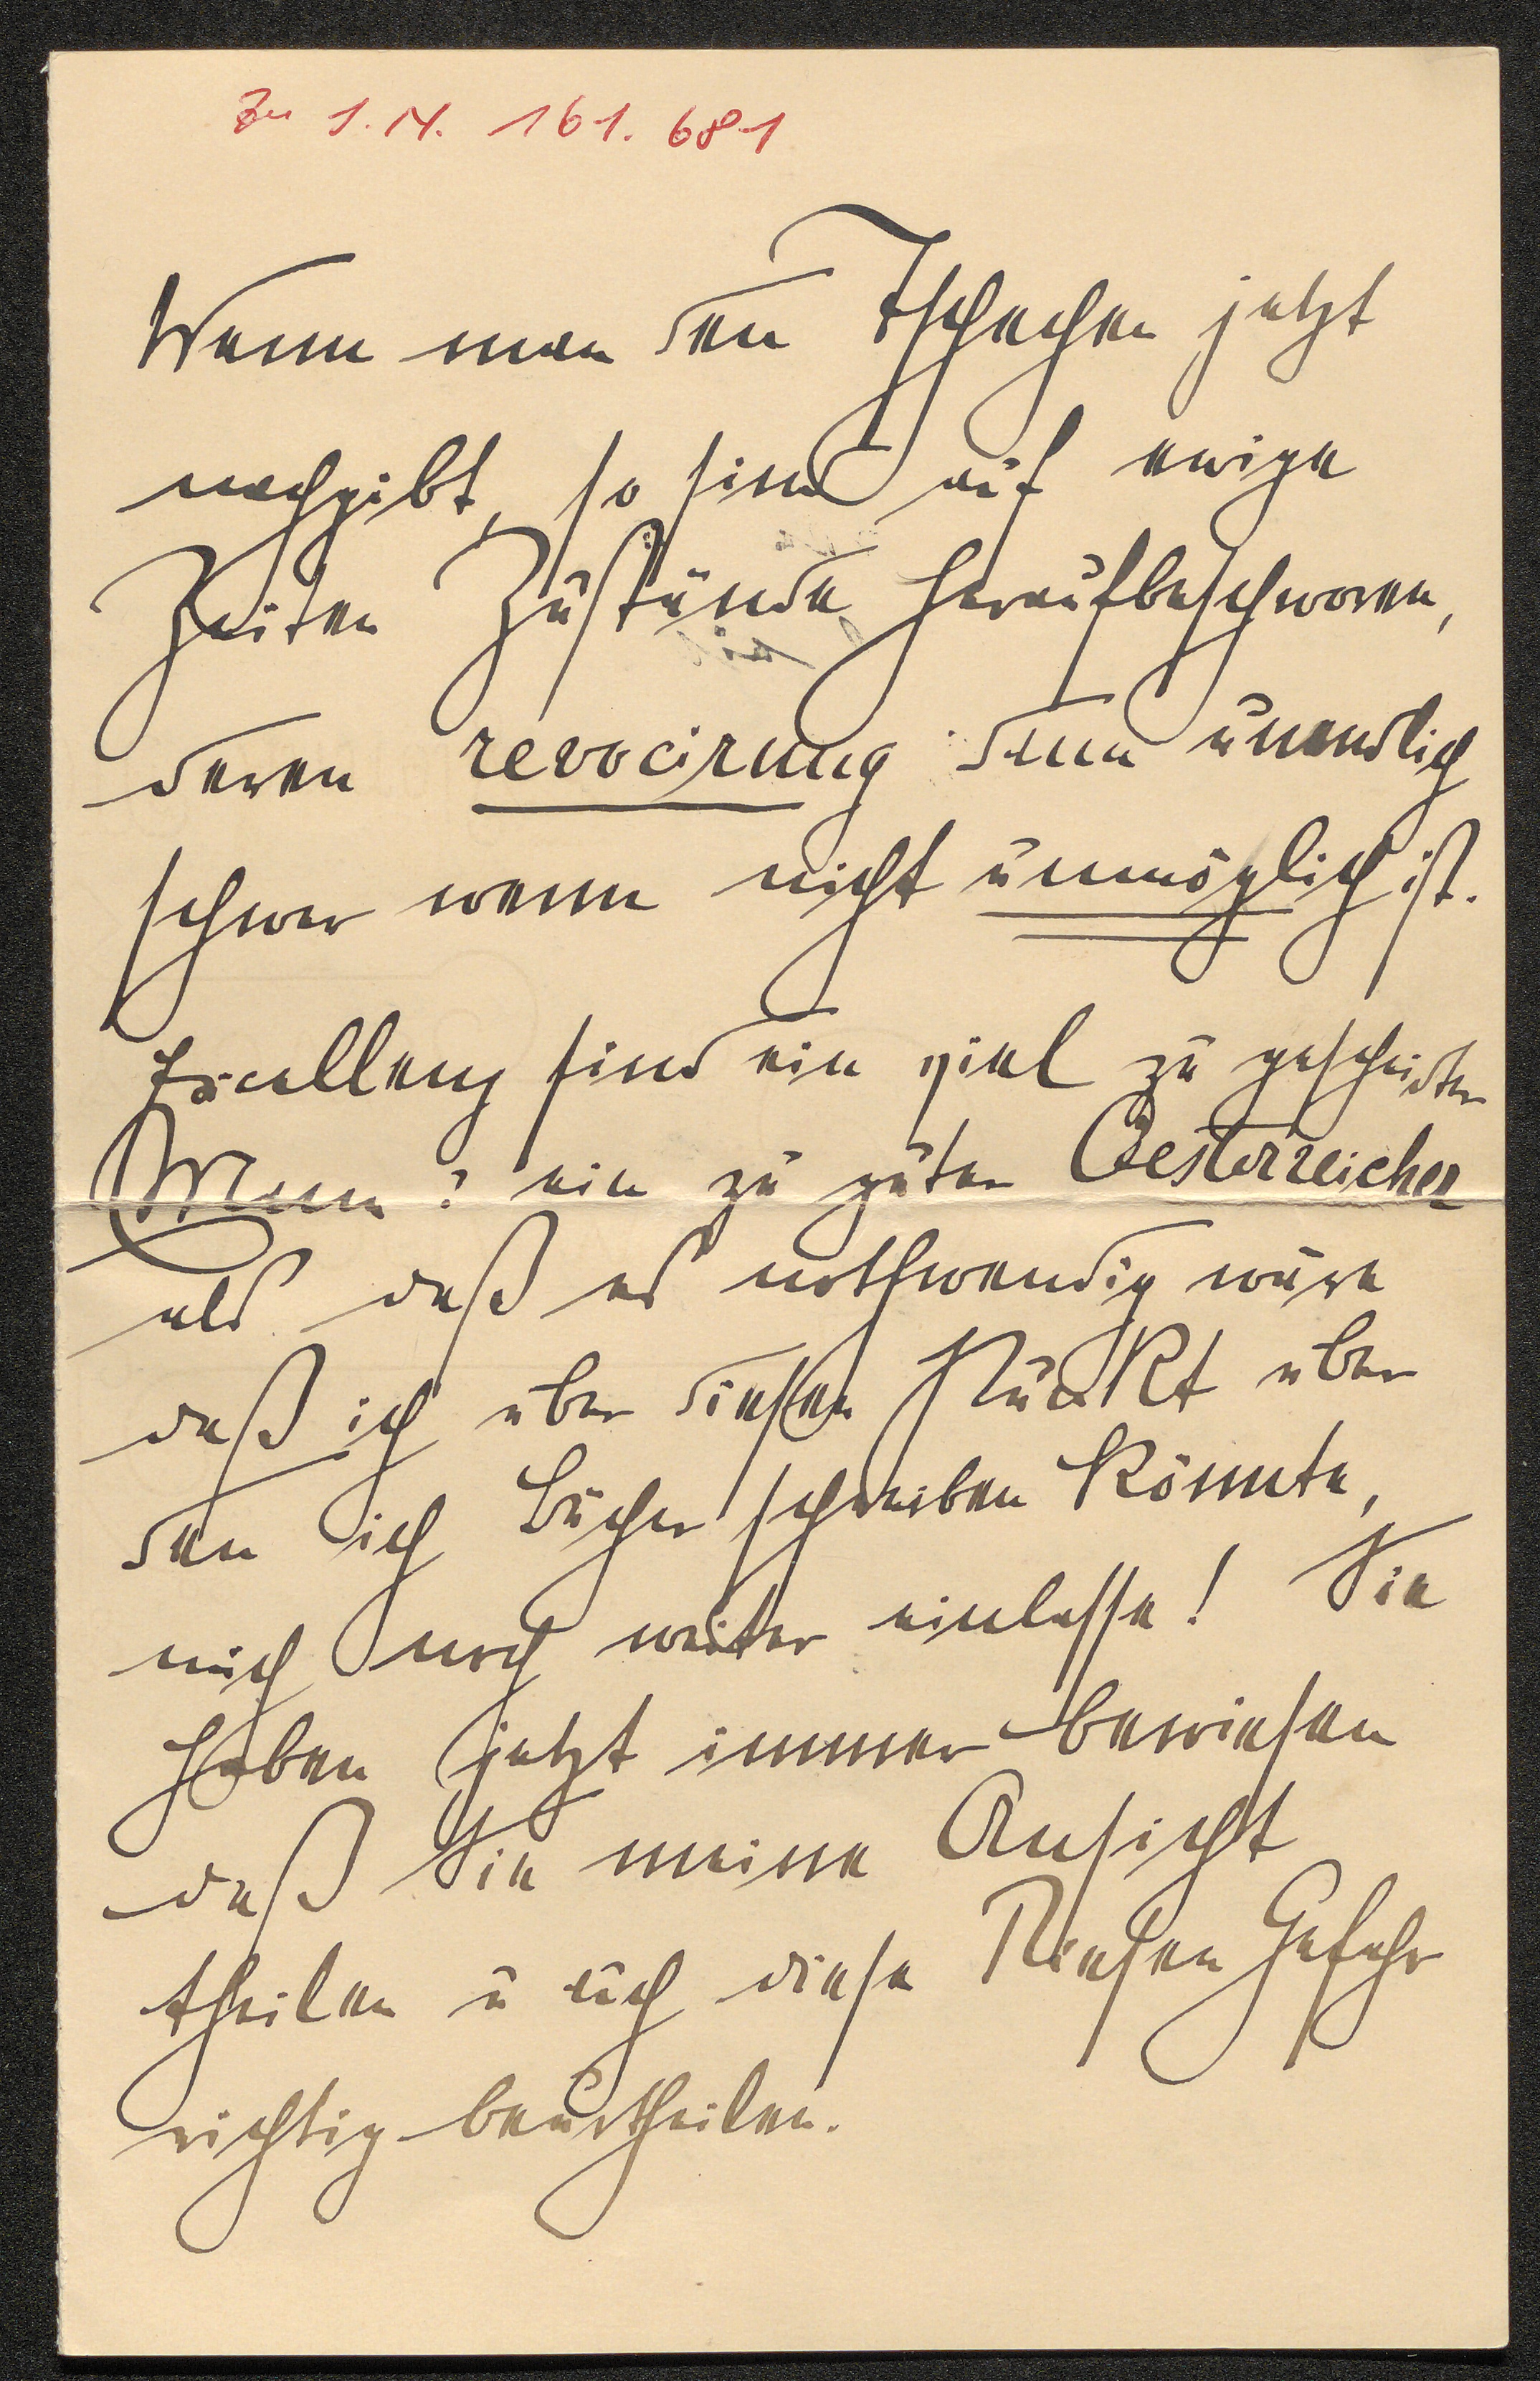 Zu I.N. 161.681
Wenn man den Tschechen jetzt
nachgibt, so sind auf ewige
Zeiten Zustände heraufbeschworen,
deren revocirung dann unendlich
schwer wenn nicht unmöglich ist.
Excellenz sind ein viel zu gescheidter
Mann & ein zu guter Oesterreicher
als daß es nothwendig wäre
daß ich über diesen Punkt über
den ich Bücher schreiben könnte,
mich noch weiter einlasse! Sie
haben jetzt immer bewiesen
daß Sie meine Ansicht
theilen u auch diese Riesen Gefahr
richtig beurtheilen.